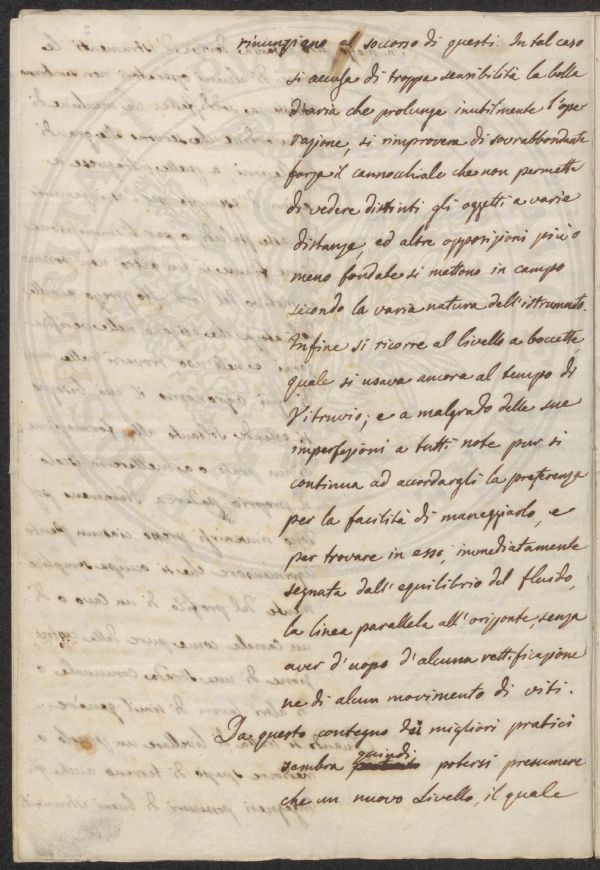 rinunziano al soccorso di questi. In tal caso
si accusa di troppa sensibilità la bolla
d'aria che prolunga inutilmente l'ope
razione, si rimprovera di sovrabbondante
forza il cannocchiale che non permette
di vedere distinti gli oggetti a varia
distanza, ed altre opposizioni più o
meno fondate si mettono in campo
secondo la varia natura dell'istrumento.
Infine si ricorre al livello a boccette,
quale si usava ancora al tempo di
Vitruvio; e a malgrado delle sue
imperfezioni a tutti note pur si
continua ad accordargli la preferenza
per la facilità di maneggiarlo, e
per trovare in esso, immediatamente
segnata dall'equilibrio del fluido,
la linea parallela all'orizonte, senza
aver d'uopo d'alcuna rettificazione
ne di alcun movimento di viti.
Da questo contegno dei migliori pratici
sembra quindi potersi presumere
che un nuovo Livello, il quale